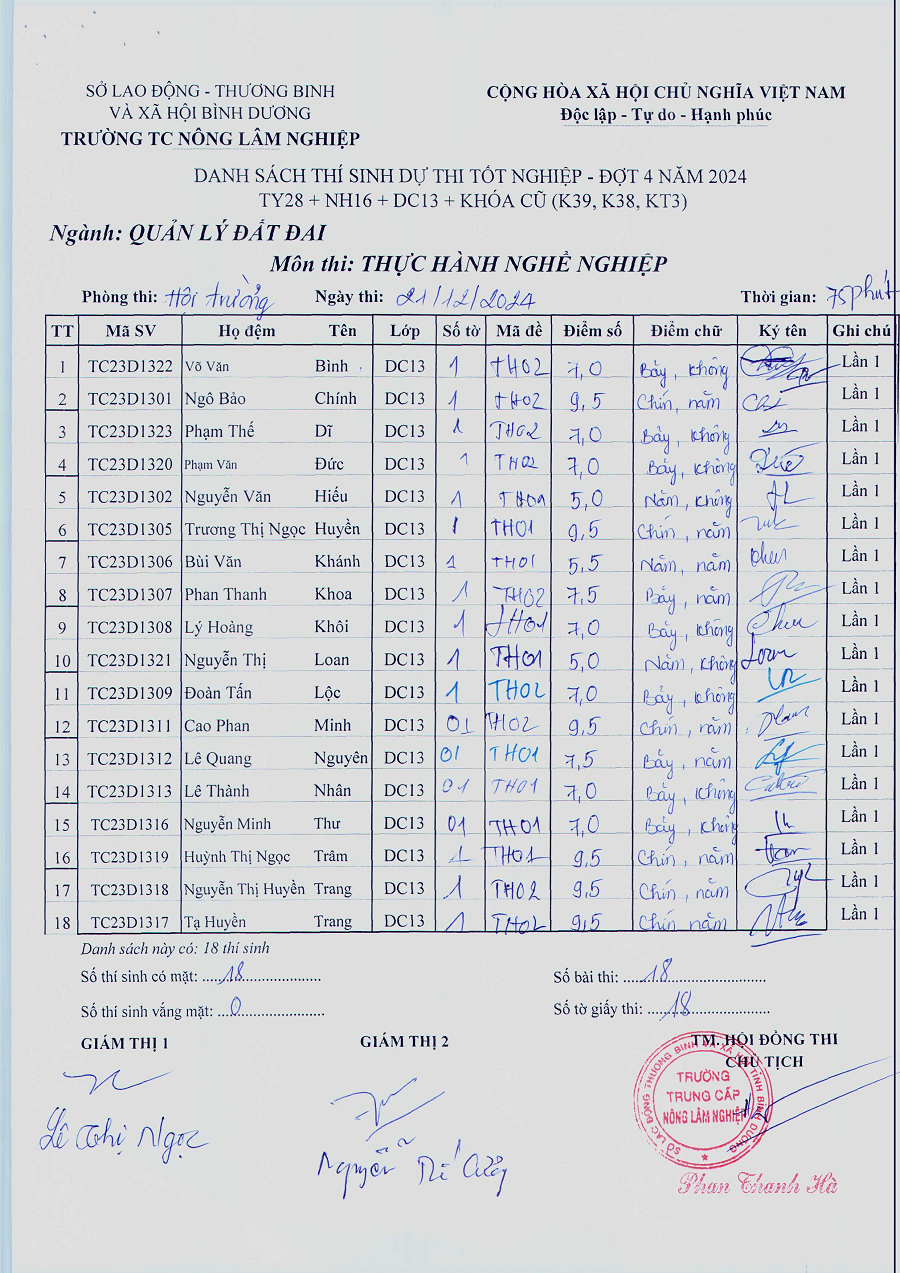 SỞ LAO ĐỘNG - THƯƠNG BINH
VÀ XÃ HỘI BÌNH DƯƠNG
TRƯỜNG TC NÔNG LÂM NGHIỆP
CỘNG HÒA XÃ HỘI CHỦ NGHĨA VIỆT NAM
Độc lập - Tự do - Hạnh phúc
DANH SÁCH THÍ SINH DỰ THI TỐT NGHIỆP - ĐỢT 4 NĂM 2024
TY28 + NH16 + DC13 + KHÓA CŨ (K39, K38, KT3)
Ngành: QUẢN LÝ ĐẤT ĐAI
Môn thi: THỰC HÀNH NGHỀ NGHIỆP
Phòng thi: Hội trường Ngày thi: 21/12/2024 Thời gian: 75 phút
TT Mã SV Họ đệm Tên Lớp Số tờ Mã đề Điểm số Điểm chữ Ký tên Ghi chú
1 TC23D1322 Võ Văn Bình DC13 1 TH02 7,0 Bảy, không Lần 1
2 TC23D1301 Ngô Bảo Chính DC13 1 TH02 9,5 Chín, năm Lần 1
3 TC23D1323 Phạm Thế Dĩ DC13 1 TH02 7,0 Bảy, không Lần 1
4 TC23D1320 Phạm Văn Đức DC13 1 TH02 7,0 Bảy, không Lần 1
5 TC23D1302 Nguyễn Văn Hiếu DC13 1 TH01 5,0 Năm, không Lần 1
6 TC23D1305 Trương Thị Ngọc Huyền DC13 1 TH01 9,5 Chín, năm Lần 1
7 TC23D1306 Bùi Văn Khánh DC13 1 TH01 5,5 Năm, năm Lần 1
8 TC23D1307 Phan Thanh Khoa DC13 1 TH02 7,5 Bảy, năm Lần 1
9 TC23D1308 Lý Hoàng Khôi DC13 1 TH01 7,0 Bảy, không Lần 1
10 TC23D1321 Nguyễn Thị Loan DC13 1 TH01 5,0 Năm, không Loan Lần 1
11 TC23D1309 Đoàn Tấn Lộc DC13 1 TH02 7,0 Bảy, không Lần 1
12 TC23D1311 Cao Phan Minh DC13 01 TH02 9,5 Chín, năm Lần 1
13 TC23D1312 Lê Quang Nguyên DC13 01 TH01 7,5 Bảy, năm Lần 1
14 TC23D1313 Lê Thành Nhân DC13 01 TH01 7,0 Bảy, không Lần 1
15 TC23D1316 Nguyễn Minh Thư DC13 01 TH01 7,0 Bảy, không Lần 1
16 TC23D1319 Huỳnh Thị Ngọc Trâm DC13 1 TH01 9,5 Chín, năm Lần 1
17 TC23D1318 Nguyễn Thị Huyền Trang DC13 1 TH02 9,5 Chín, năm Lần 1
18 TC23D1317 Tạ Huyền Trang DC13 1 TH02 9,5 Chín năm Lần 1
Danh sách này có: 18 thí sinh
Số thí sinh có mặt: .....18.....................
Số bài thi: ......18.......................
Số thí sinh vắng mặt: ...0.....................
Số tờ giấy thi: ......18.....................
GIÁM THỊ 1 GIÁM THỊ 2 TM. HỘI ĐỒNG THI
CHỦ TỊCH
SỞ LAO ĐỘNG THƯƠNG BINH VÀ XÃ HỘI TỈNH BÌNH DƯƠNG
TRƯỜNG
TRUNG CẤP
NÔNG LÂM NGHIỆP
Lê Thị Ngọc
Nguyễn
Phan Thanh Hà